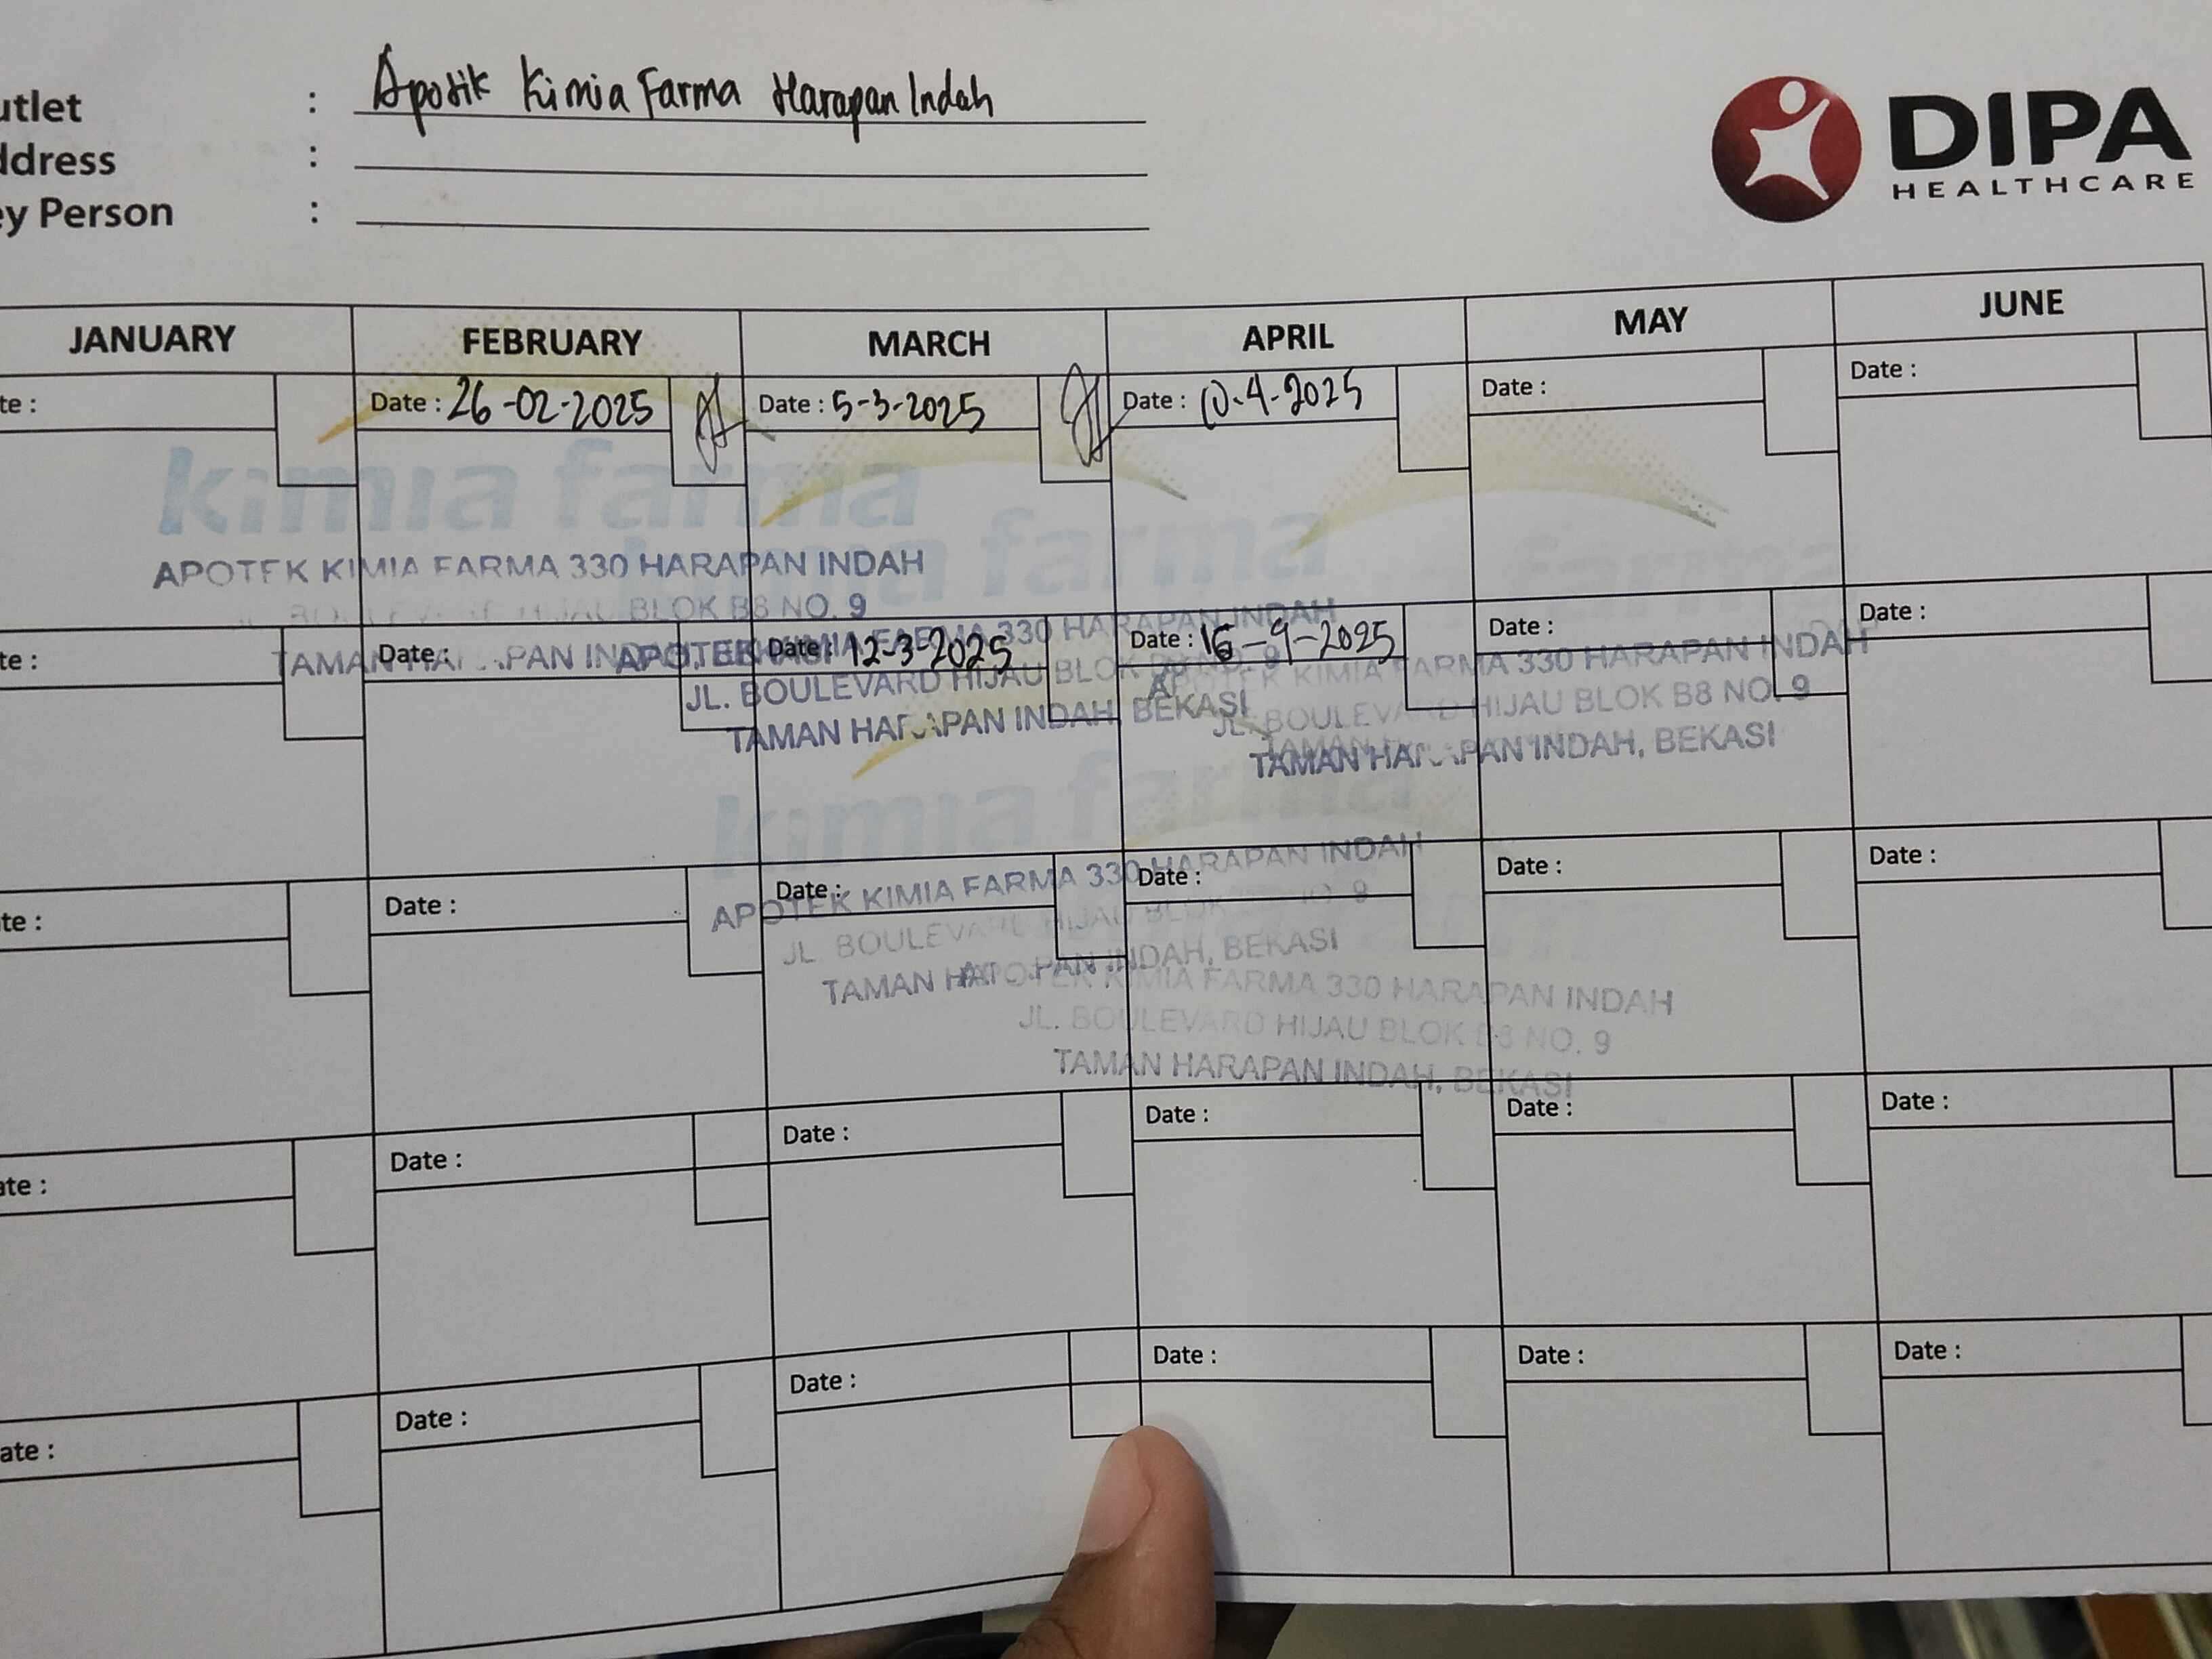 utlet : Apotik Kimia Farma Harapan Indah
ddress :
ey Person :
DIPA
HEALTHCARE
JANUARY FEBRUARY MARCH APRIL MAY JUNE
te : Date : 26-02-2025 Date : 5-3-2025 Date : 10-4-2025 Date : Date :
kimia farma
farma
farma
APOTEK KIMIA FARMA 330 HARAPAN INDAH
BLOK B8 NO. 9
te : Date : Date : 12-3-2025 Date : 16-9-2025 Date : Date :
KIMIA FARMA 330 HARAPAN INDAH
JL. BOULEVARD HIJAU BLOK
TAMAN HARAPAN INDAH, BEKASI
KIMIA FARMA 330 HARAPAN INDAH
JL. BOULEVARD HIJAU BLOK B8 NO. 9
TAMAN HARAPAN INDAH, BEKASI
kimia farma
te : Date : Date : Date : Date : Date :
APOTEK KIMIA FARMA 330 HARAPAN INDAH
JL BOULEVARD HIJAU BLOK 9
TAMAN INDAH, BEKASI
KIMIA FARMA 330 HARAPAN INDAH
JL. BOULEVARD HIJAU BLOK B8 NO. 9
TAMAN HARAPAN INDAH, BEKASI
ate : Date : Date : Date : Date : Date :
ate : Date : Date : Date : Date : Date :